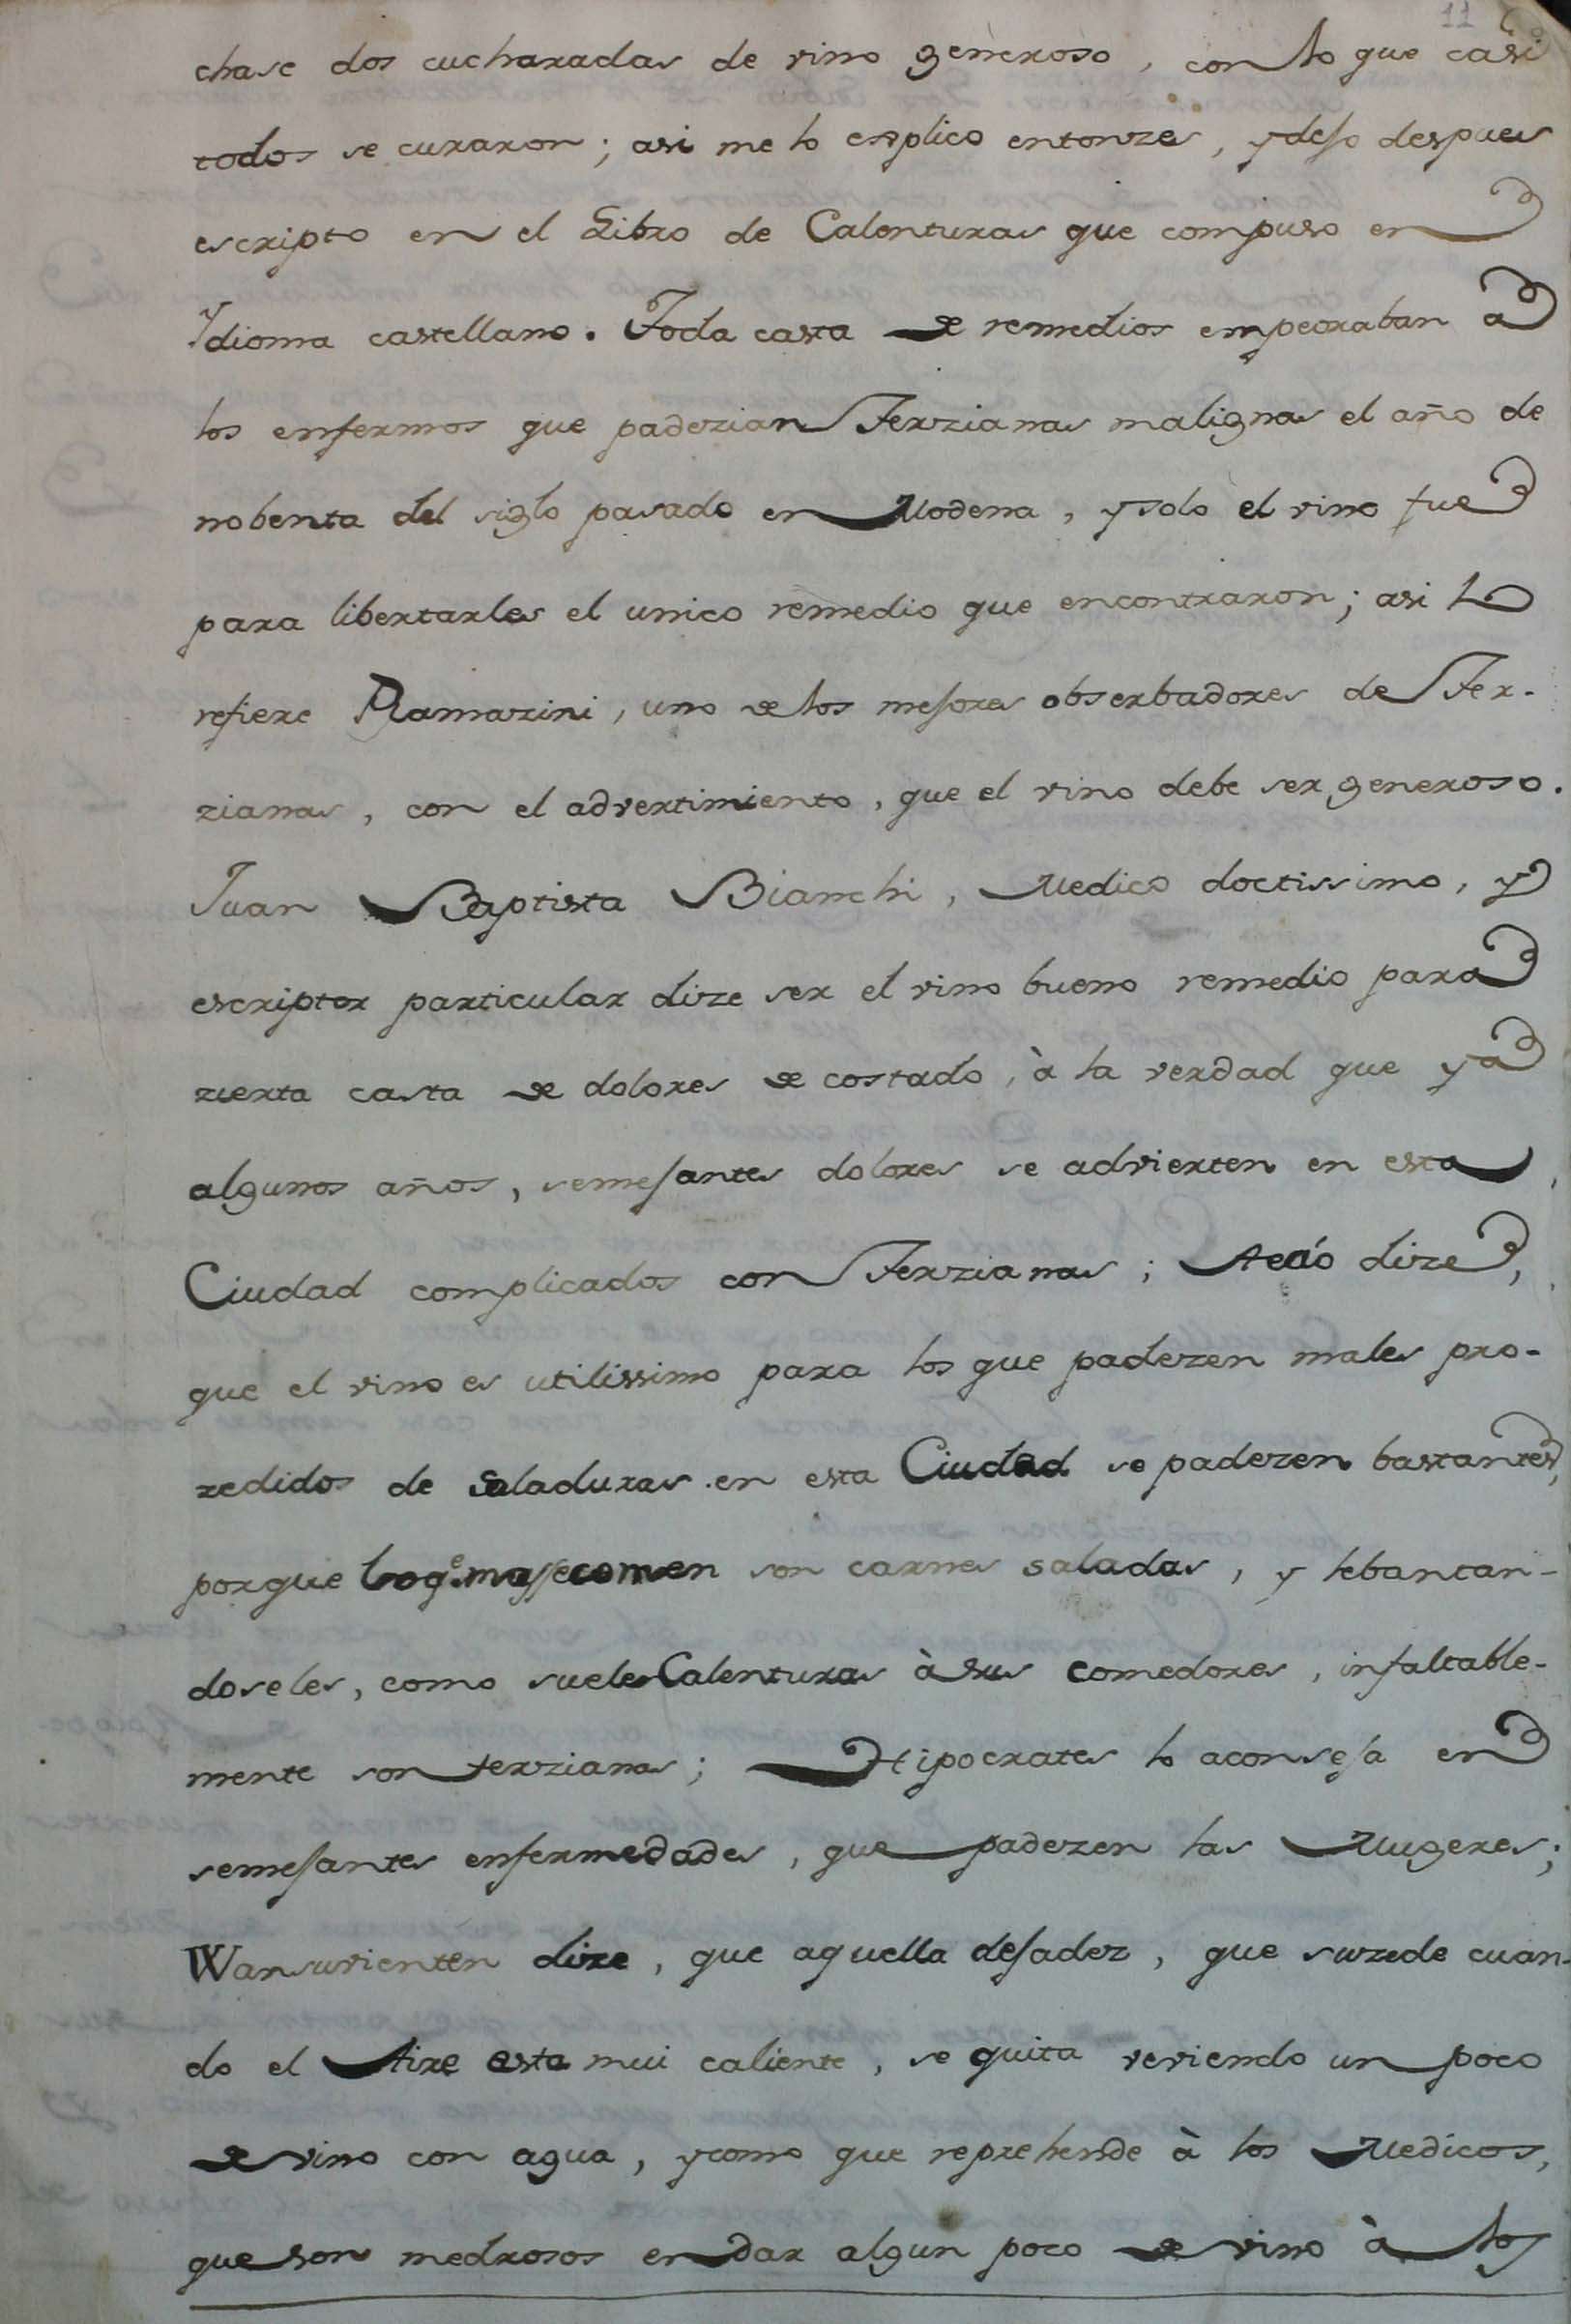 11
chase dos cucharadas de vino generoso, con lo que casi
todos se curaron; asi me lo explico entonzes, y dejo despues
escripto en el Libro de Calenturas que compuso en
Ydioma castellano. Toda casta de remedios empeoraban a
los enfermos que padezian Terzianas malignas el año de
nobenta del siglo pasado en Modena, y solo el vino fue
para libertarles el unico remedio que encontraron; asi lo
refiere Ramazini, uno de los mejores obserbadores de Ter-
zianas, con el advertimiento, que el vino debe ser generoso.
Juan Baptista Bianchi, Medico doctissimo, y
escriptor particular dize ser el vino bueno remedio para
zierta casta de dolores de costado, à la verdad que ya
algunos años, semejantes dolores se advierten en esta
Ciudad complicados con Terzianas; Aecio dize,
que el vino es utilissimo para los que padezen males pro-
zedidos de saladuras en esta Ciudad se padezen bastantes,
porque lo q.e mas se comen son carnes saladas, y lebantan-
doseles, como suelen Calenturas à sus comedores, infaltable-
mente son terzianas; Hipocrates lo aconseja en
semejantes enfermedades, que padezen las Mugeres;
Wansuvienten dize, que aquella dejadez, que suzede cuan-
do el Aire esta mui caliente, se quita veviendo un poco
de vino con agua, y como que reprehende à los Medicos,
que son medrosos en dar algun poco de vino à los